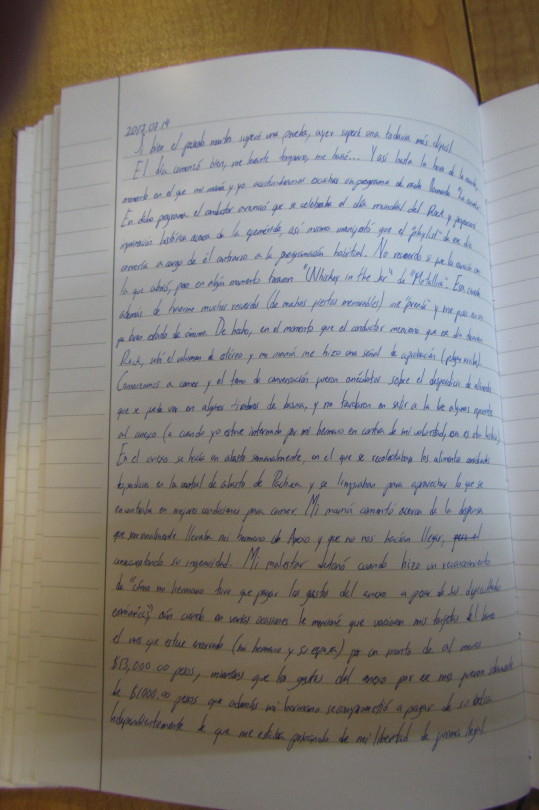 2017.07.14
Si bien el pasado martes superé una prueba, ayer superé una todavía más difícil
El día comenzó bien, me levanté temprano, me bañé... Y así hasta la hora de la comida,
momento en el que mi mamá y yo acostumbramos escuchar un programa de radio llamado "La
En dicho programa el conductor anunció que se celebraba el día mundial del Rock, y pequeñas
históricas acerca de la efeméride, así mismo manifestó que el "playlist" de ese día
correría a cargo de él contrario a la programación habitual. No recuerdo si fue la canción con
la que abrió, pero en algún momento tocaron "Whiskey in the Jar" de "Metallica". Esa canción
además de traerme muchos recuerdos (de muchas fiestas memorables) me "prende" y me puso en un
buen estado de ánimo. De hecho, en el momento que el conductor menciono que ese día
Rock, subí el volumen de estéreo y mi mamá me hizo una señal de aprobación (pulgar arriba).
Comenzamos a comer y el tema de conversación fueron anécdotas sobre el desperdicio de alimentos
que se puede ver en algunos botes de basura, y no tardaron en salir a la luz algunos
al anexo (a cuando yo estuve internado por mi hermano en contra de mi voluntad, esa es otra historia).
En el anexo se hacía un abasto semanalmente, en el que se recolectaban los alimentos
en la central de abasto de Pachuca y se limpiaban para aprovechar lo que se
encontraba en mejores condiciones para comer. Mi mamá comentó acerca de la despensa
que semanalmente llevaba mi hermano al Anexo y que no nos hacían llegar,
su ingenuidad. Mi malestar detonó cuando hizo un
de "cómo mi hermano tuvo que pagar los gastos del anexo a pesar de sus dificultades
económicas", aún cuando en varias ocasiones le mencioné que vaciaron mis tarjetas del banco
el mes que estuve encerrado (mi hermano y su esposa) por un monto de al menos
$13,000.00 pesos, mientras que los gastos del anexo por ese mes fueron
de $1000.00 pesos que además mi hermano se comprometió a pagar de su bolsa
Independientemente de que me estaba privando de mi libertad de forma ilegal.